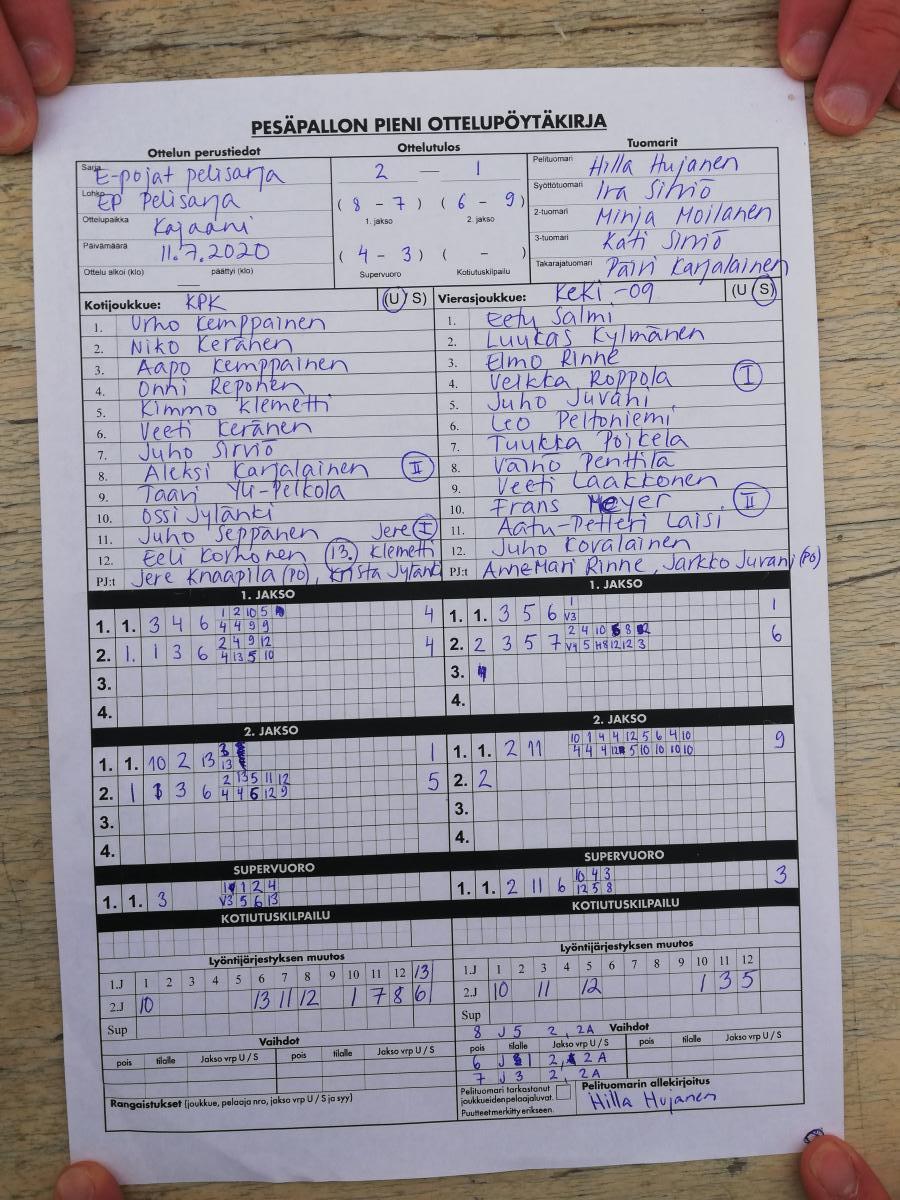 PESÄPALLON PIENI OTTELUPÖYTÄKIRJA
Ottelun perustiedot Ottelutulos Tuomarit
Sarja E-pojat pelisarja
Lohko EP Pelisarja
Ottelupaikka Kajaani
Päivämäärä 11.7.2020
Ottelu alkoi (klo) päättyi (klo)
2 — 1
( 8 - 7 ) ( 6 - 9 )
1. jakso 2. jakso
( 4 - 3 ) ( - )
Supervuoro Kotiutuskilpailu
Pelituomari Hilla Hujanen
Syöttötuomari Ira Sirviö
2-tuomari Minja Moilanen
3-tuomari Kati Sirviö
Takarajatuomari Päivi Karjalainen
Kotijoukkue: KPK (U S)
1. Urho Kemppainen
2. Niko Keränen
3. Aapo Kemppainen
4. Onni Reponen
5. Kimmo Klemetti
6. Veeti Keränen
7. Juho Sirviö
8. Aleksi Karjalainen II
9. Taavi Yli-Pelkola
10. Ossi Jylänki
11. Juho Seppänen Jere I
12. Eeli Korhonen 13. Klemetti
PJ:t Jere Knaapila (PO), Krista Jylänki
Vierasjoukkue: KeKi -09 (U S)
1. Eetu Salmi
2. Luukas Kylmänen
3. Elmo Rinne
4. Veikka Roppola I
5. Juho Juvani
6. Leo Peltoniemi
7. Tuukka Poikela
8. Väinö Penttilä
9. Veeti Laakkonen
10. Frans Meyer II
11. Aatu-Petteri Laisi
12. Juho Kovalainen
PJ:t AnneMari Rinne, Jarkko Juvani (PO)
1. JAKSO
1. 1. 3 4 6 1 2 10 5 4
4 4 9 9
2. 1. 1 3 6 2 4 9 12 4
4 13 5 10
3.
4.
1. JAKSO
1. 1. 3 5 6 1 1
V3
2. 2 3 5 7 2 4 10 6 8 12 6
V4 5 H8 12 12 3
3.
4.
2. JAKSO
1. 1. 10 2 13 3 1
13
2. 1 1 3 6 2 13 5 11 12 5
4 4 6 12 9
3.
4.
2. JAKSO
1. 1. 2 11 10 1 4 4 12 5 6 4 10 9
4 4 4 12 5 10 10 10 10
2. 2
3.
4.
SUPERVUORO
1. 1. 3 1 1 2 4
V3 5 6 13
SUPERVUORO
1. 1. 2 11 6 10 4 3 3
12 5 8
KOTIUTUSKILPAILU
KOTIUTUSKILPAILU
Lyöntijärjestyksen muutos
1.J 1 2 3 4 5 6 7 8 9 10 11 12 13
2.J 10 13 11 12 1 7 8 6
Sup
Lyöntijärjestyksen muutos
1.J 1 2 3 4 5 6 7 8 9 10 11 12
2.J 10 11 12 1 3 5
Sup
Vaihdot
pois tilalle Jakso vrp U / S pois tilalle Jakso vrp U / S
Rangaistukset (joukkue, pelaaja nro, jakso vrp U / S ja syy)
8 J5 2, 2A Vaihdot
pois tilalle Jakso vrp U / S pois tilalle Jakso vrp U / S
6 J 1 2, 2 A
7 J 3 2, 2A
Pelituomari tarkastanut joukkueiden pelaajaluvat.
Puutteet merkitty erikseen.
Pelituomarin allekirjoitus
Hilla Hujanen